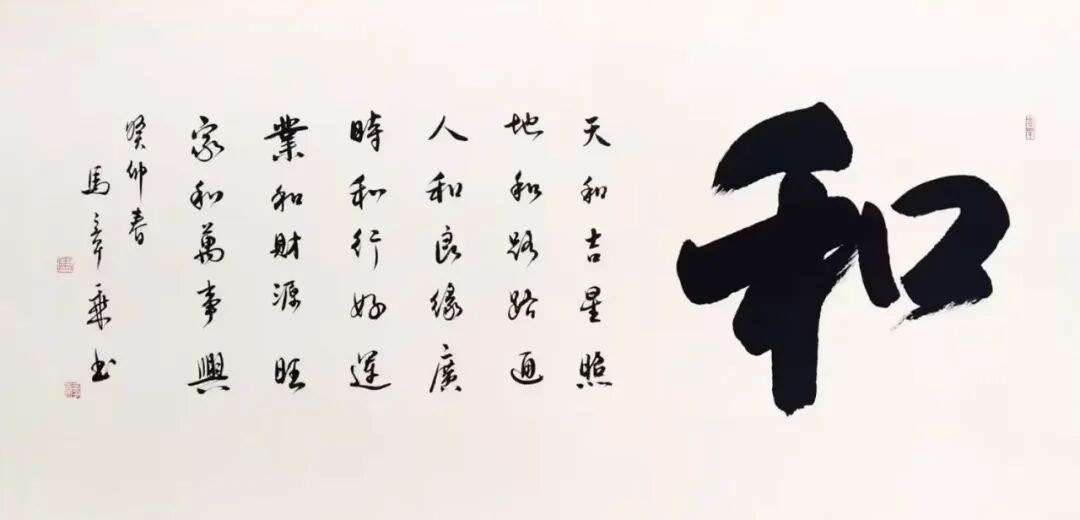 和
天和吉星照
地和路路通
人和良緣廣
時和行好運
業和財源旺
家和萬事興
癸卯春
馬 书